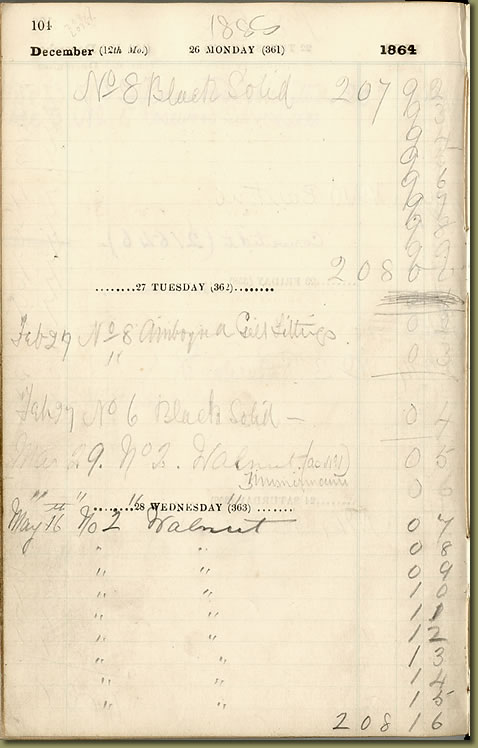 104 1885
December (12th Mo.) 26 MONDAY (361) 1864
No 8 Black Solid 207 9 2
9 3
9 4
9 5
9 6
9 7
9 8
9 9
208 0 0
........27 TUESDAY (362)........
Feb 27 No 8 Amboyna Gilt Fittings 0 3
"
Feb 27 No 6 Black Solid — 0 4
Mar 29. No 2. Walnut 0 5
0 6
" " "
........28 WEDNESDAY (363) .......
May 16th No 2 Walnut 0 7
" " 0 8
" " 0 9
" " 1 0
" " 1 1
" " 1 2
" " 1 3
" " 1 4
" " 1 5
208 1 6